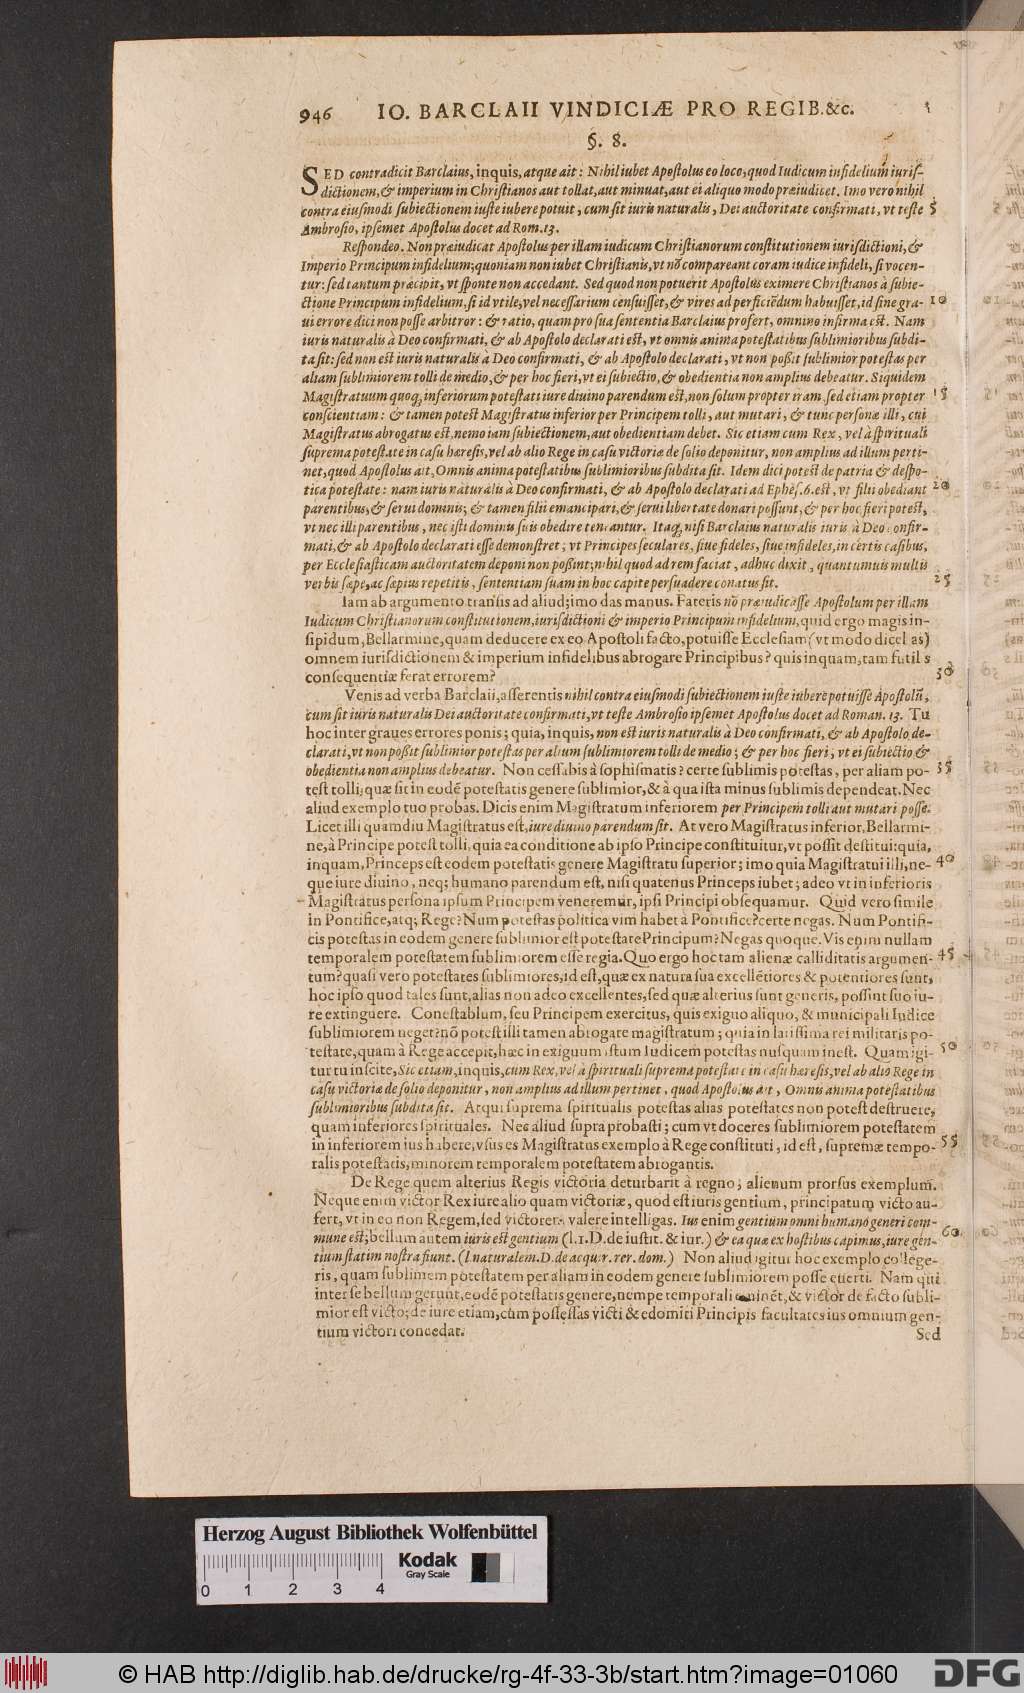 946 IO. BARCLAII VINDICIÆ PRO REGIB.&c.
§. 8.
SED contradicit Barclaius, inquis, atque ait: Nihil iubet Apostolus eo loco, quod Iudicum infidelium iuris-
dictionem, & imperium in Christianos aut tollat, aut minuat, aut ei aliquo modo præiudicet. Imo vero nihil
contra eiusmodi subiectionem iuste iubere potuit, cum sit iuris naturalis, Dei auctoritate confirmati, vt teste 5
Ambrosio, ipsemet Apostolus docet ad Rom. 13.
Respondeo. Non præiudicat Apostolus per illam iudicum Christianorum constitutionem iurisdictioni, &
Imperio Principum infidelium; quoniam non iubet Christianis, vt nō compareant coram iudice infideli, si vocen-
tur: sed tantum præcipit, vt sponte non accedant. Sed quod non potuerit Apostolus eximere Christianos à subie-
ctione Principum infidelium, si id vtile, vel necessarium censuisset, & vires ad perficiēdum habuisset, id sine gra- 10
ui errore dici non posse arbitror: & ratio, quam pro sua sententia Barclaius profert, omnino infirma est. Nam
iuris naturalis à Deo confirmati, & ab Apostolo declarati est, vt omnis anima potestatibus sublimioribus subdi-
ta sit: sed non est iuris naturalis à Deo confirmati, & ab Apostolo declarati, vt non possit sublimior potestas per
aliam sublimiorem tolli de medio, & per hoc fieri, vt ei subiectio, & obedientia non amplius debeatur. Siquidem
Magistratuum quoq; inferiorum potestati iure diuino parendum est, non solum propter iram, sed etiam propter 15
conscientiam: & tamen potest Magistratus inferior per Principem tolli, aut mutari, & tunc personæ illi, cui
Magistratus abrogatus est, nemo iam subiectionem, aut obedientiam debet. Sic etiam cum Rex, vel à spirituali
suprema potestate in casu hæresis, vel ab alio Rege in casu victoriæ de solio deponitur, non amplius ad illum perti-
net, quod Apostolus ait, Omnis anima potestatibus sublimioribus subdita sit. Idem dici potest de patria & despo-
tica potestate: nam iuris naturalis à Deo confirmati, & ab Apostolo declarati ad Ephes. 6. est, vt filii obediant 20
parentibus, & serui dominis; & tamen filii emancipari, & serui libertate donari possunt, & per hoc fieri potest,
vt nec illi parentibus, nec isti dominis suis obedire teneantur. Itaq; nisi Barclaius naturalis iuris à Deo confir-
mati, & ab Apostolo declarati esse demonstret; vt Principes seculares, siue fideles, siue infideles, in certis casibus,
per Ecclesiasticam auctoritatem deponi non possint; nihil quod ad rem faciat, adhuc dixit, quantumuis multis
verbis sæpe, ac sæpius repetitis, sententiam suam in hoc capite persuadere conatus sit. 25
Iam ab argumento transis ad aliud; imo das manus. Fateris nō præiudicasse Apostolum per illam
Iudicum Christianorum constitutionem, iurisdictioni & imperio Principum infidelium, quid ergo magis in-
sipidum, Bellarmine, quam deducere ex eo Apostoli facto, potuisse Ecclesiam (vt modo dicebas)
omnem iurisdictionem & imperium infidelibus abrogare Principibus? quis inquam, tam futilis
consequentiæ ferat errorem? 30
Venis ad verba Barclaii, asserentis nihil contra eiusmodi subiectionem iuste iubere potuisse Apostolū,
cum sit iuris naturalis Dei auctoritate confirmati, vt teste Ambrosio ipsemet Apostolus docet ad Roman. 13. Tu
hoc inter graues errores ponis; quia, inquis, non est iuris naturalis à Deo confirmati, & ab Apostolo de-
clarati, vt non possit sublimior potestas per alium sublimiorem tolli de medio; & per hoc fieri, vt ei subiectio &
obedientia non amplius debeatur. Non cessabis à sophismatis? certe sublimis potestas, per aliam po- 35
test tolli, quæ sit in eodē potestatis genere sublimior, & à qua ista minus sublimis dependeat. Nec
aliud exemplo tuo probas. Dicis enim Magistratum inferiorem per Principem tolli aut mutari posse.
Licet illi quamdiu Magistratus est, iure diuino parendum sit. At vero Magistratus inferior, Bellarmi-
ne, à Principe potest tolli, quia ea conditione ab ipso Principe constituitur, vt possit destitui: quia,
inquam, Princeps est eodem potestatis genere Magistratu superior; imo quia Magistratui illi, ne- 40
que iure diuino, neq; humano parendum est, nisi quatenus Princeps iubet; adeo vt in inferioris
Magistratus persona ipsum Principem veneremur, ipsi Principi obsequamur. Quid vero simile
in Pontifice, atq; Rege? Num potestas politica vim habet à Pontifice? certe negas. Num Pontifi-
cis potestas in eodem genere sublimior est potestate Principum? Negas quoque. Vis enim nullam
temporalem potestatem sublimiorem esse regia. Quo ergo hoc tam alienæ calliditatis argumen- 45
tum? quasi vero potestates sublimiores, id est, quæ ex natura sua excellētiores & potentiores sunt,
hoc ipso quod tales sunt, alias non adeo excellentes, sed quæ alterius sunt generis, possint suo iu-
re extinguere. Conestablum, seu Principem exercitus, quis exiguo aliquo, & municipali Iudice
sublimiorem neget? nō potest illi tamen abrogare magistratum; quia in latissima rei militaris po-
testate, quam à Rege accepit, hæc in exiguum istum Iudicem potestas nusquam inest. Quam igi- 50
tur tu inscite, Sic etiam, inquis, cum Rex, vel à spirituali suprema potestate in casu hæresis, vel ab alio Rege in
casu victoriæ de solio deponitur, non amplius ad illum pertinet, quod Apostolus ait, Omnis anima potestatibus
sublimioribus subdita sit. Atqui suprema spiritualis potestas alias potestates non potest destruere,
quam inferiores spirituales. Nec aliud supra probasti; cum vt doceres sublimiorem potestatem
in inferiorem ius habere, vsus es Magistratus exemplo à Rege constituti, id est, supremæ tempo- 55
ralis potestatis, minorem temporalem potestatem abrogantis.
De Rege quem alterius Regis victoria deturbarit à regno; alienum prorsus exemplum.
Neque enim victor Rex iure alio quam victoriæ, quod est iuris gentium, principatum victo au-
fert, vt in eo non Regem, sed victorem valere intelligas. Ius enim gentium omni humano generi com-
mune est; bellum autem iuris est gentium (l. 1. D. de iustit. & iur.) & ea quæ ex hostibus capimus, iure gen- 60
tium statim nostra fiunt. (l. naturalem. D. de acquir. rer. dom.) Non aliud igitur hoc exemplo collége-
ris, quam sublimem potestatem per aliam in eodem genere sublimiorem posse euerti. Nam qui
inter se bellum gerunt, eodē potestatis genere, nempe temporali eminēt, & victor de facto subli-
mior est victo; de iure etiam, cum possessas victi & edomiti Principis facultates ius omnium gen-
tium victori concedat.
Sed
Herzog August Bibliothek Wolfenbüttel
Kodak
Gray Scale
0 1 2 3 4
© HAB http://diglib.hab.de/drucke/rg-4f-33-3b/start.htm?image=01060
DFG